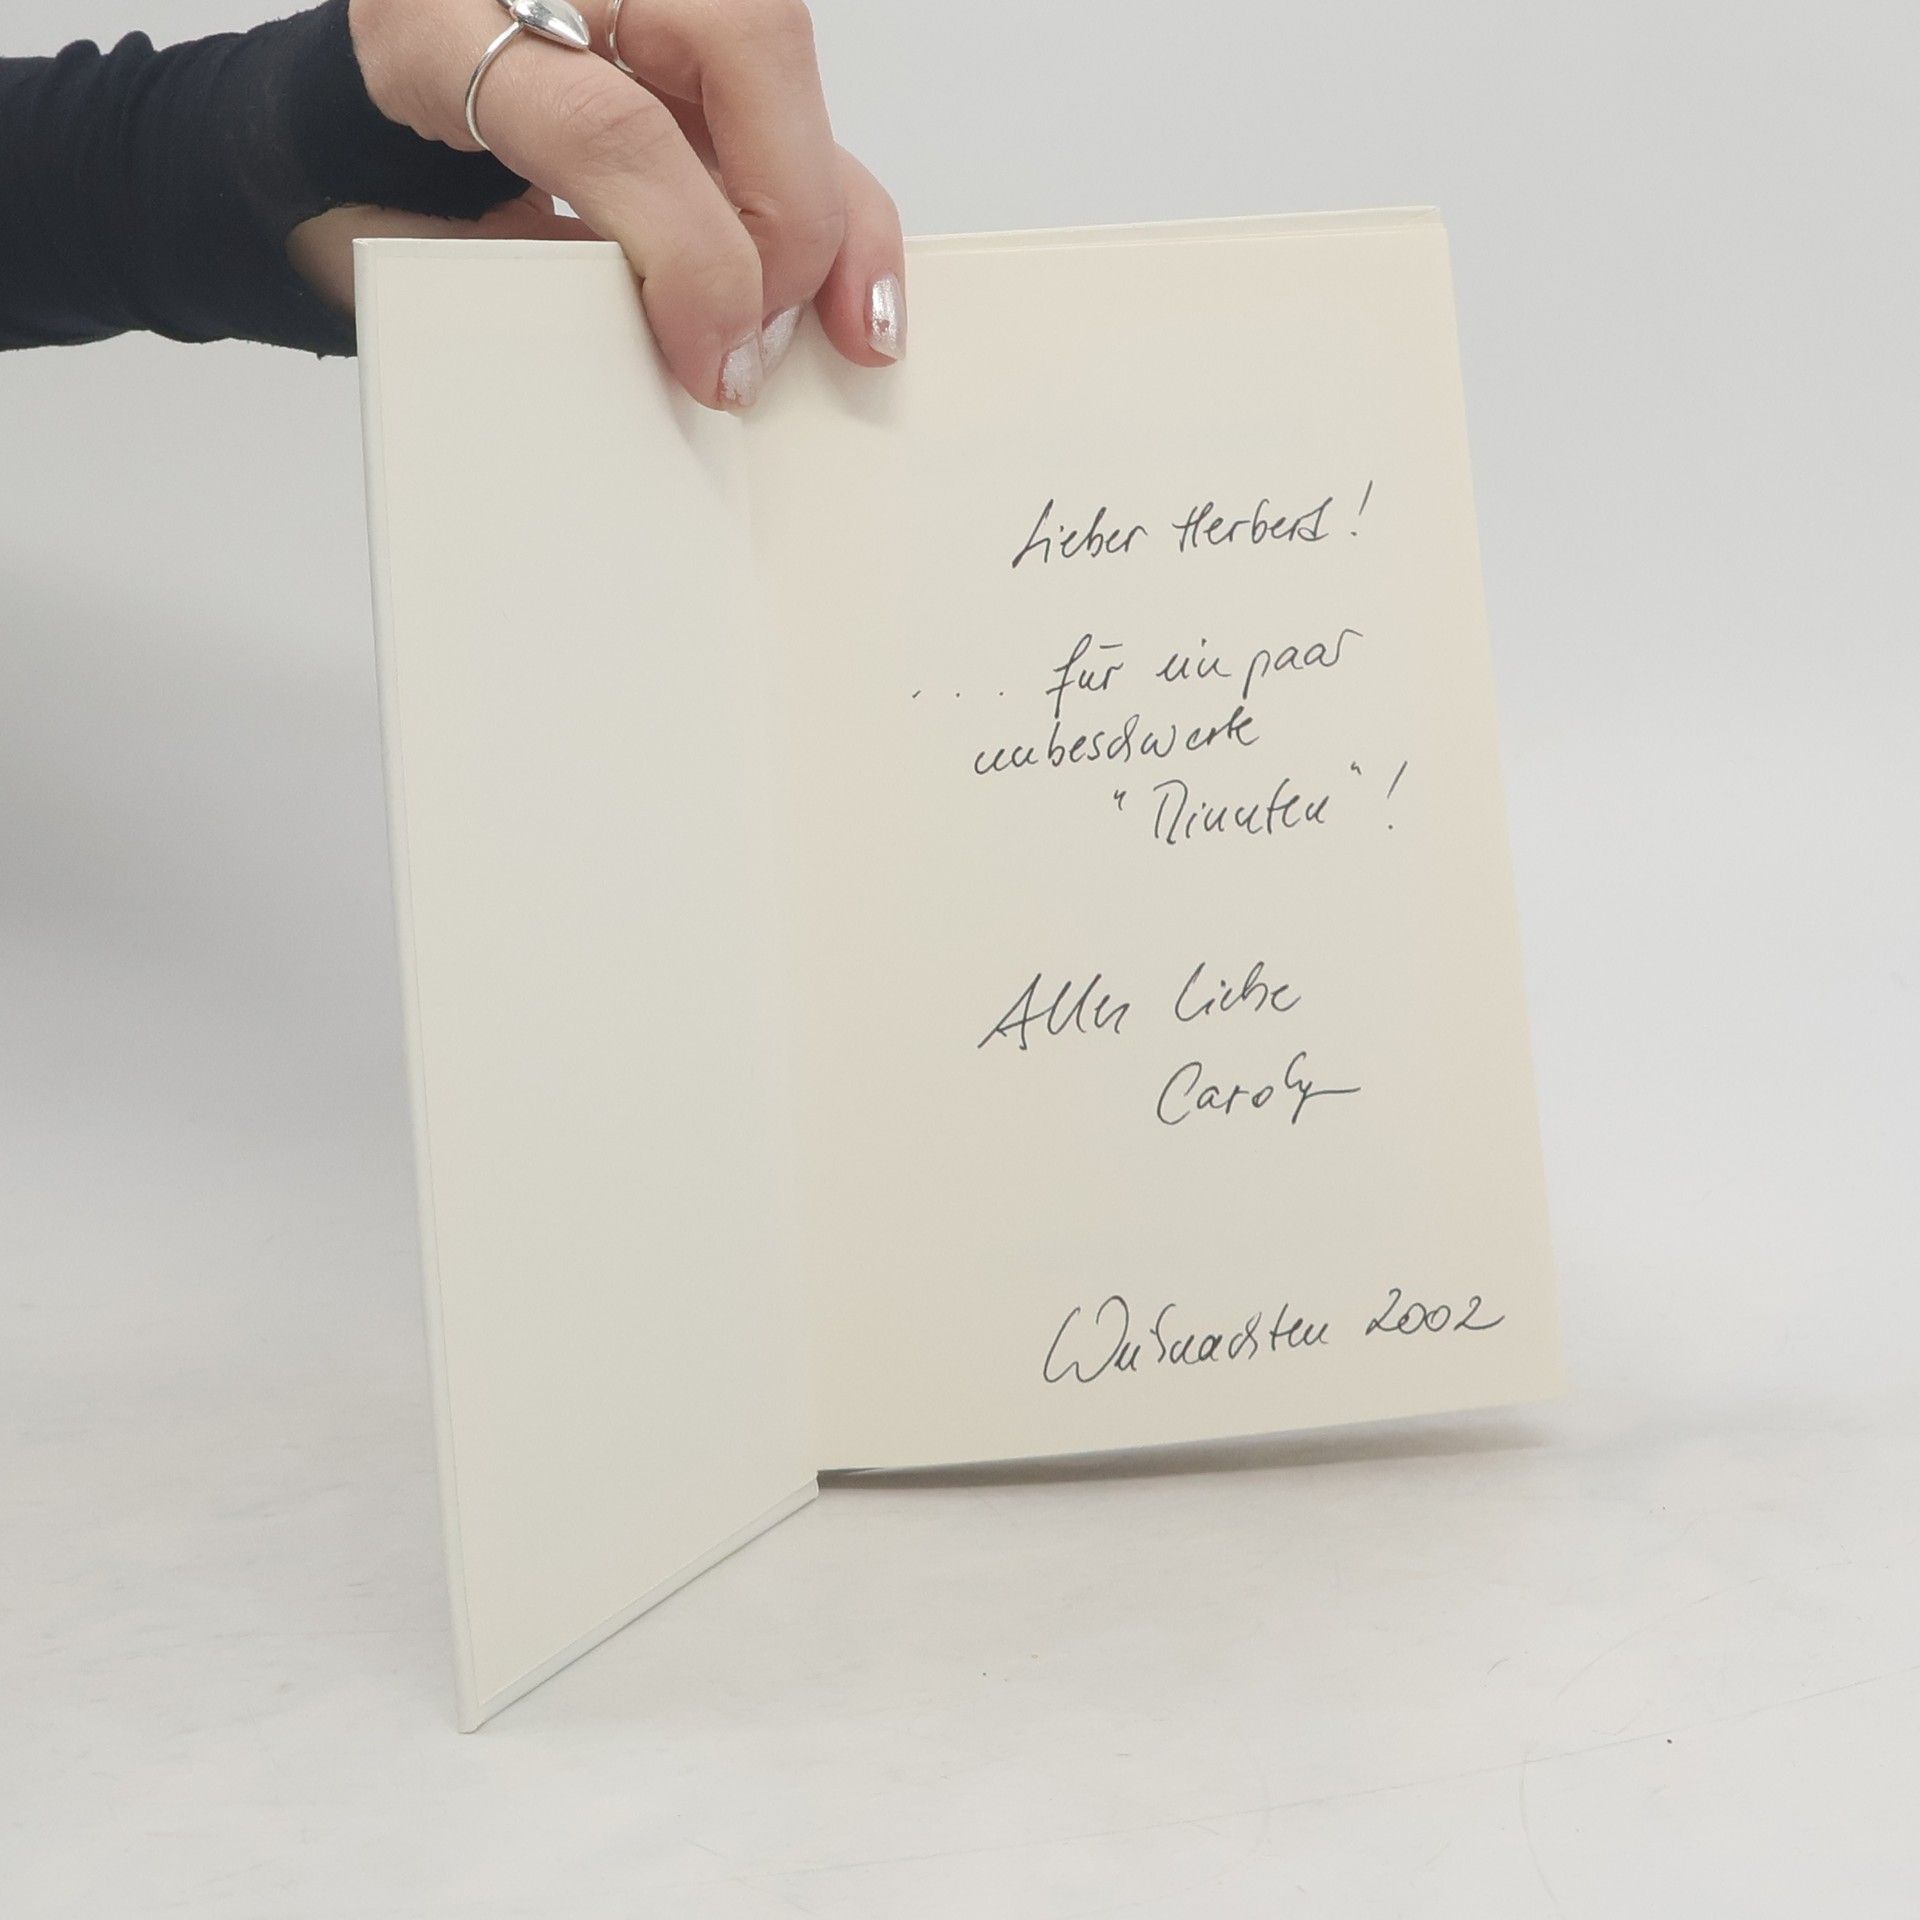 Lieber Herbert!
... für ein paar
unbeschwerte
"Minuten"!
Alles Liebe
Carolyn
Weihnachten 2002